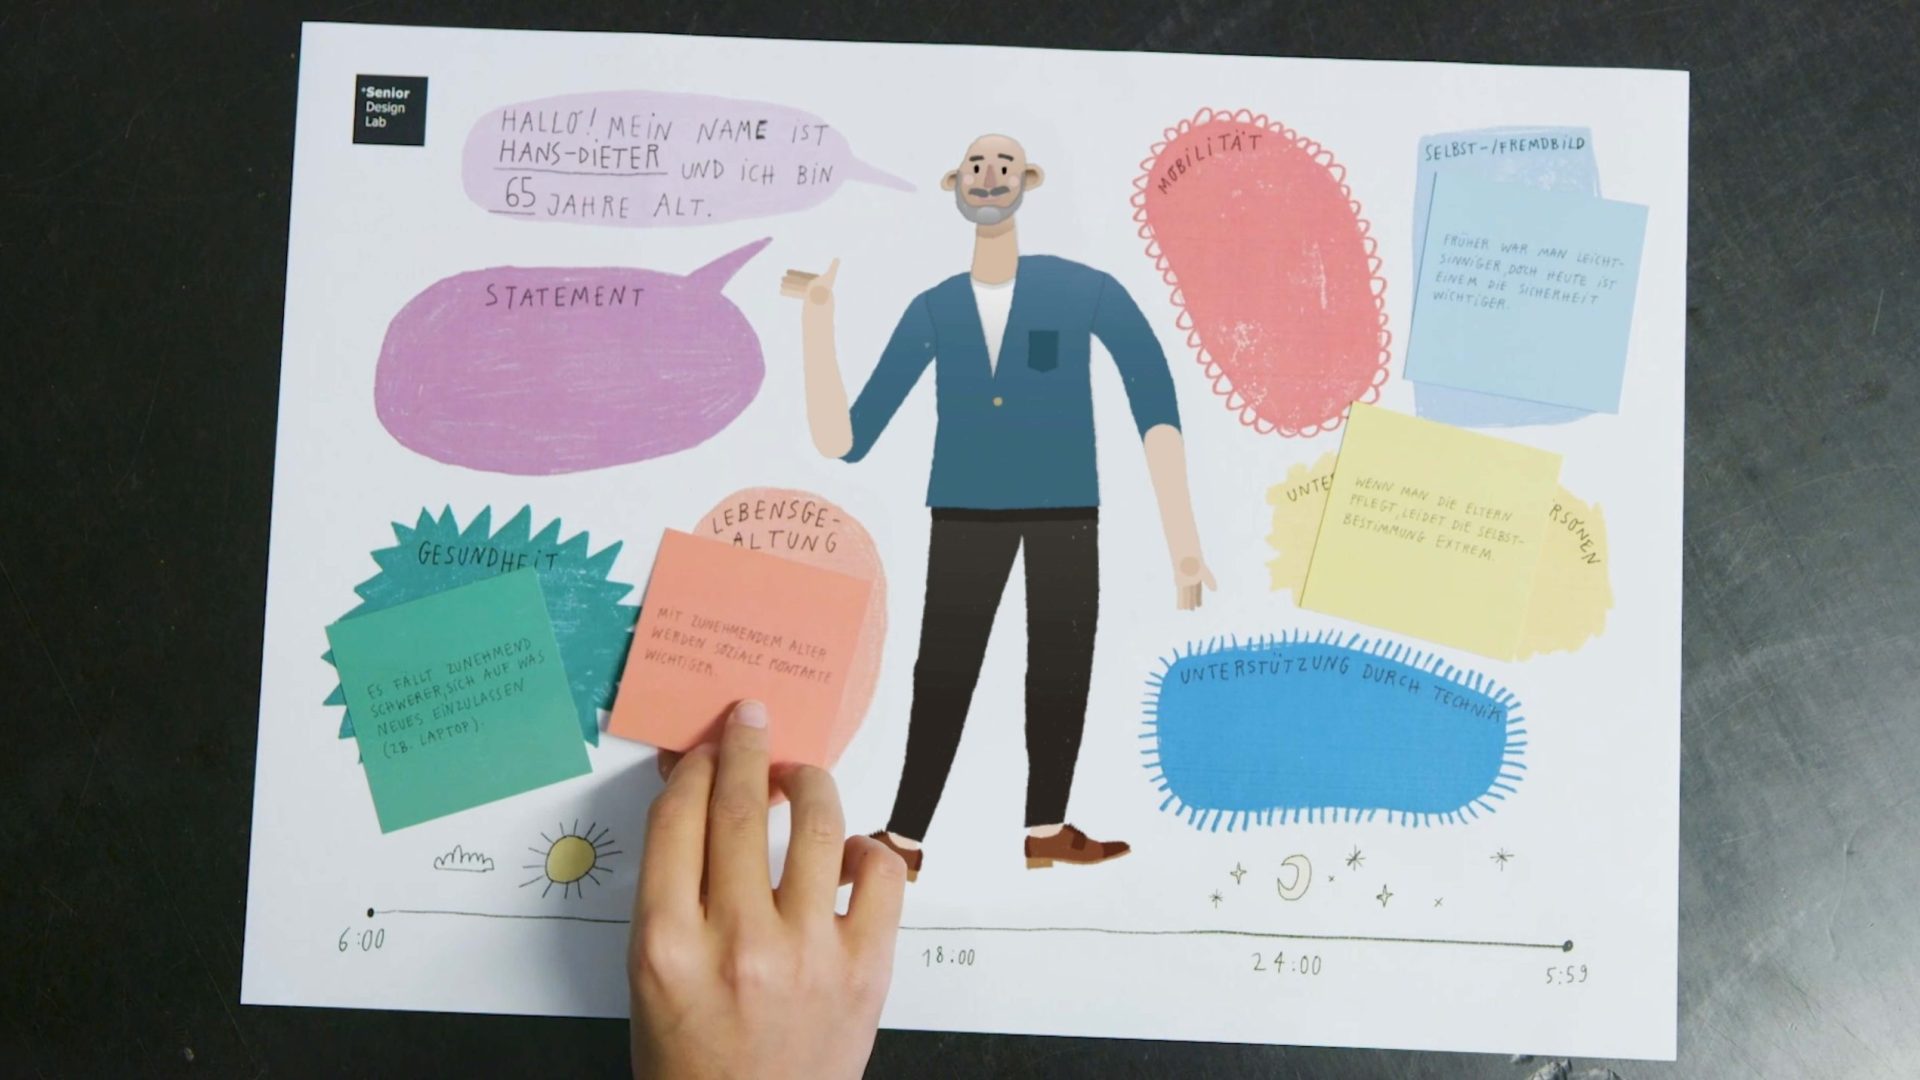 *Senior
Design
Lab
HALLO! MEIN NAME IST
HANS-DIETER UND ICH BIN
65 JAHRE ALT.
STATEMENT
MOBILITÄT
SELBST-/FREMDBILD
FRÜHER WAR MAN LEICHT-
SINNIGER, DOCH HEUTE IST
EINEM DIE SICHERHEIT
WICHTIGER.
GESUNDHEIT
ES FÄLLT ZUNEHMEND
SCHWERER, SICH AUF WAS
NEUES EINZULASSEN
(ZB. LAPTOP).
LEBENSGE-
ALTUNG
MIT ZUNEHMENDEM ALTER
WERDEN SOZIALE KONTAKTE
WICHTIGER.
UNTE
RSONEN
WENN MAN DIE ELTERN
PFLEGT, LEIDET DIE SELBST-
BESTIMMUNG EXTREM.
UNTERSTÜTZUNG DURCH TECHNIK
6:00
18:00
24:00
5:59